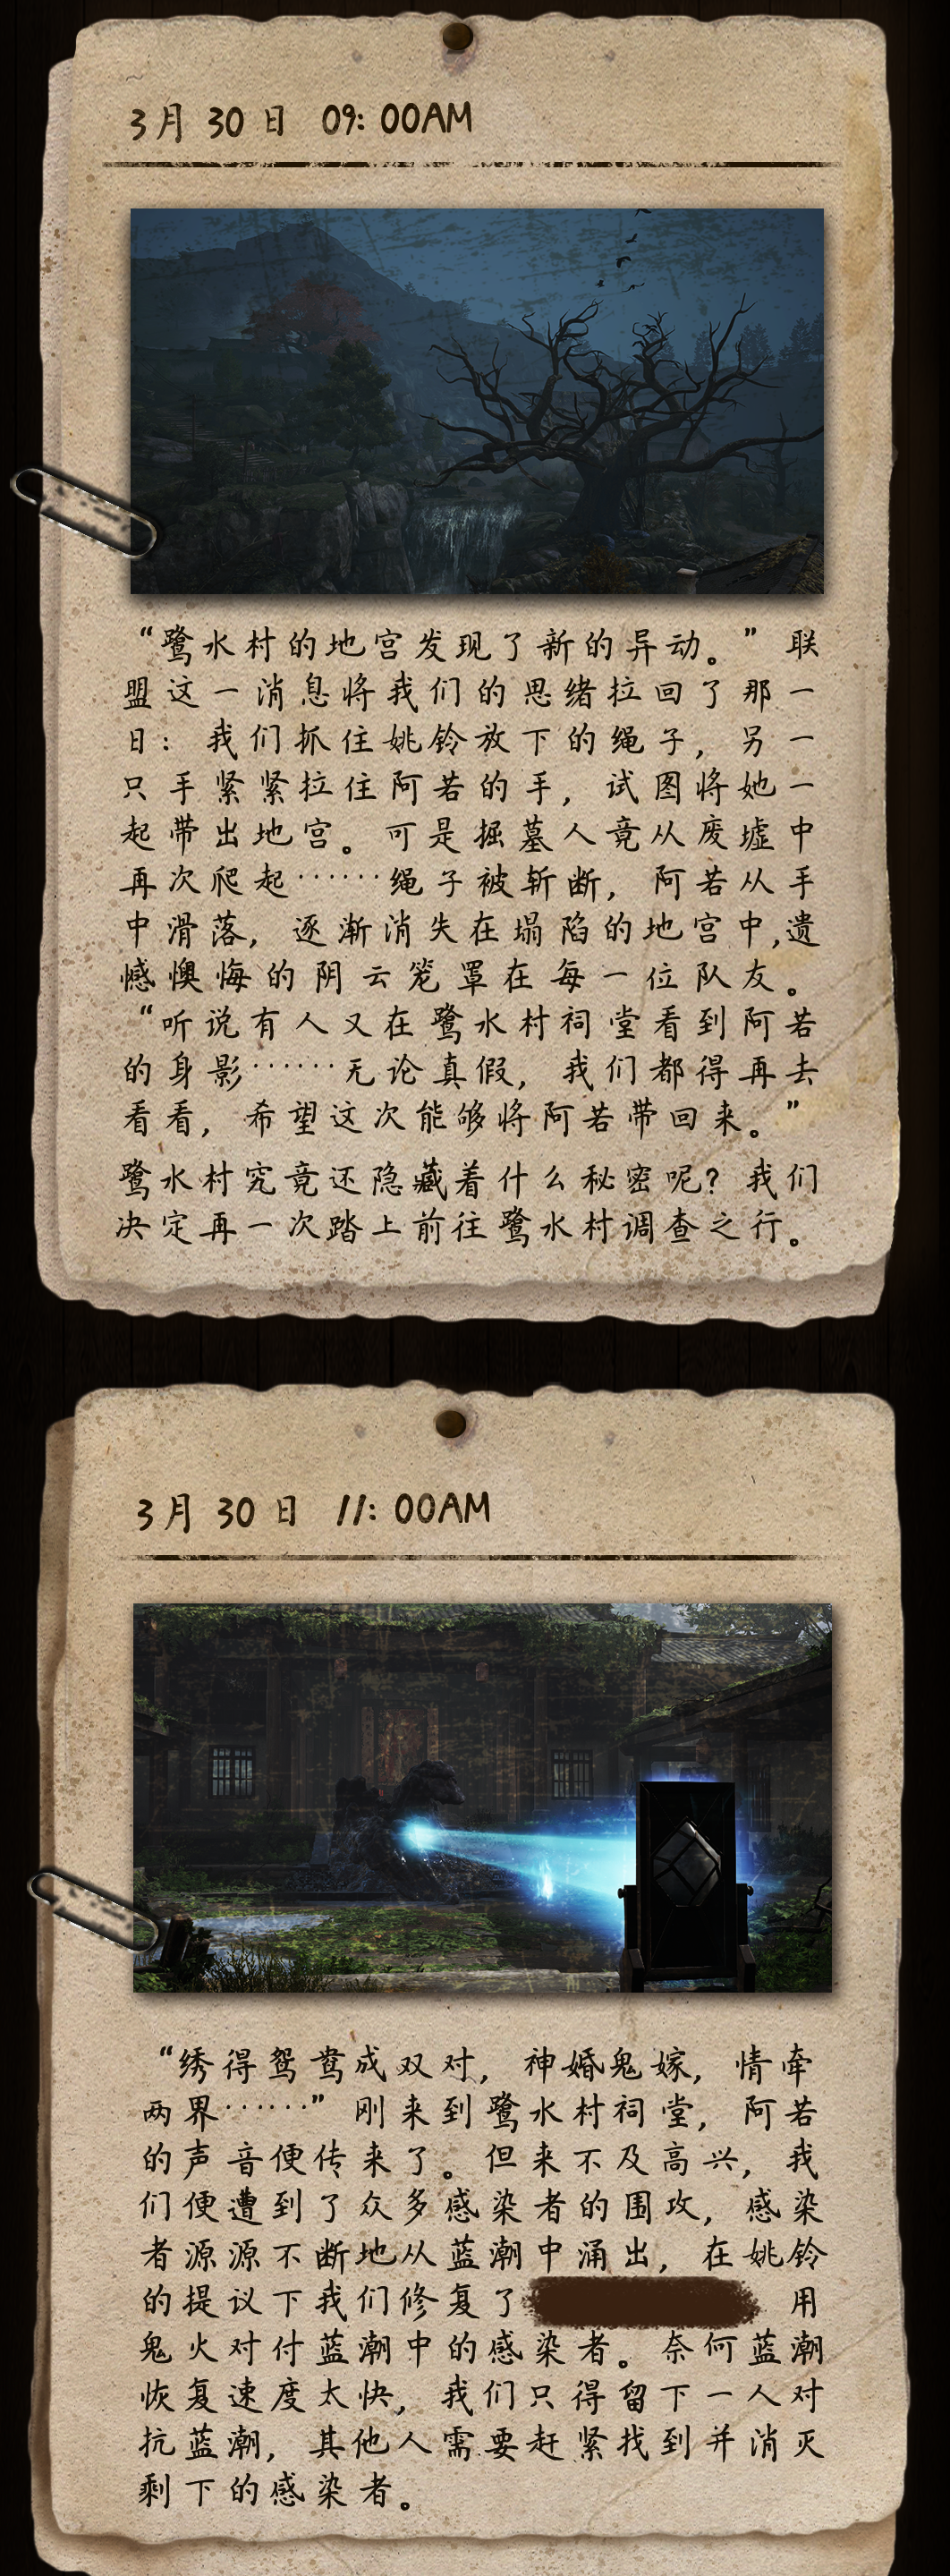 3月30日 09:00AM
“鹭水村的地宫发现了新的异动。”联
盟这一消息将我们的思绪拉回了那一
日：我们抓住姚铃放下的绳子，另一
只手紧紧拉住阿若的手，试图将她一
起带出地宫。可是掘墓人竟从废墟中
再次爬起……绳子被斩断，阿若从手
中滑落，逐渐消失在塌陷的地宫中,遗
憾懊悔的阴云笼罩在每一位队友。
“听说有人又在鹭水村祠堂看到阿若
的身影……无论真假，我们都得再去
看看，希望这次能够将阿若带回来。”
鹭水村究竟还隐藏着什么秘密呢？我们
决定再一次踏上前往鹭水村调查之行。
3月30日 11:00AM
“绣得鸳鸯成双对，神婚鬼嫁，情牵
两界……”刚来到鹭水村祠堂，阿若
的声音便传来了。但来不及高兴，我
们便遭到了众多感染者的围攻，感染
者源源不断地从蓝潮中涌出，在姚铃
的提议下我们修复了 用
鬼火对付蓝潮中的感染者。奈何蓝潮
恢复速度太快，我们只得留下一人对
抗蓝潮，其他人需要赶紧找到并消灭
剩下的感染者。